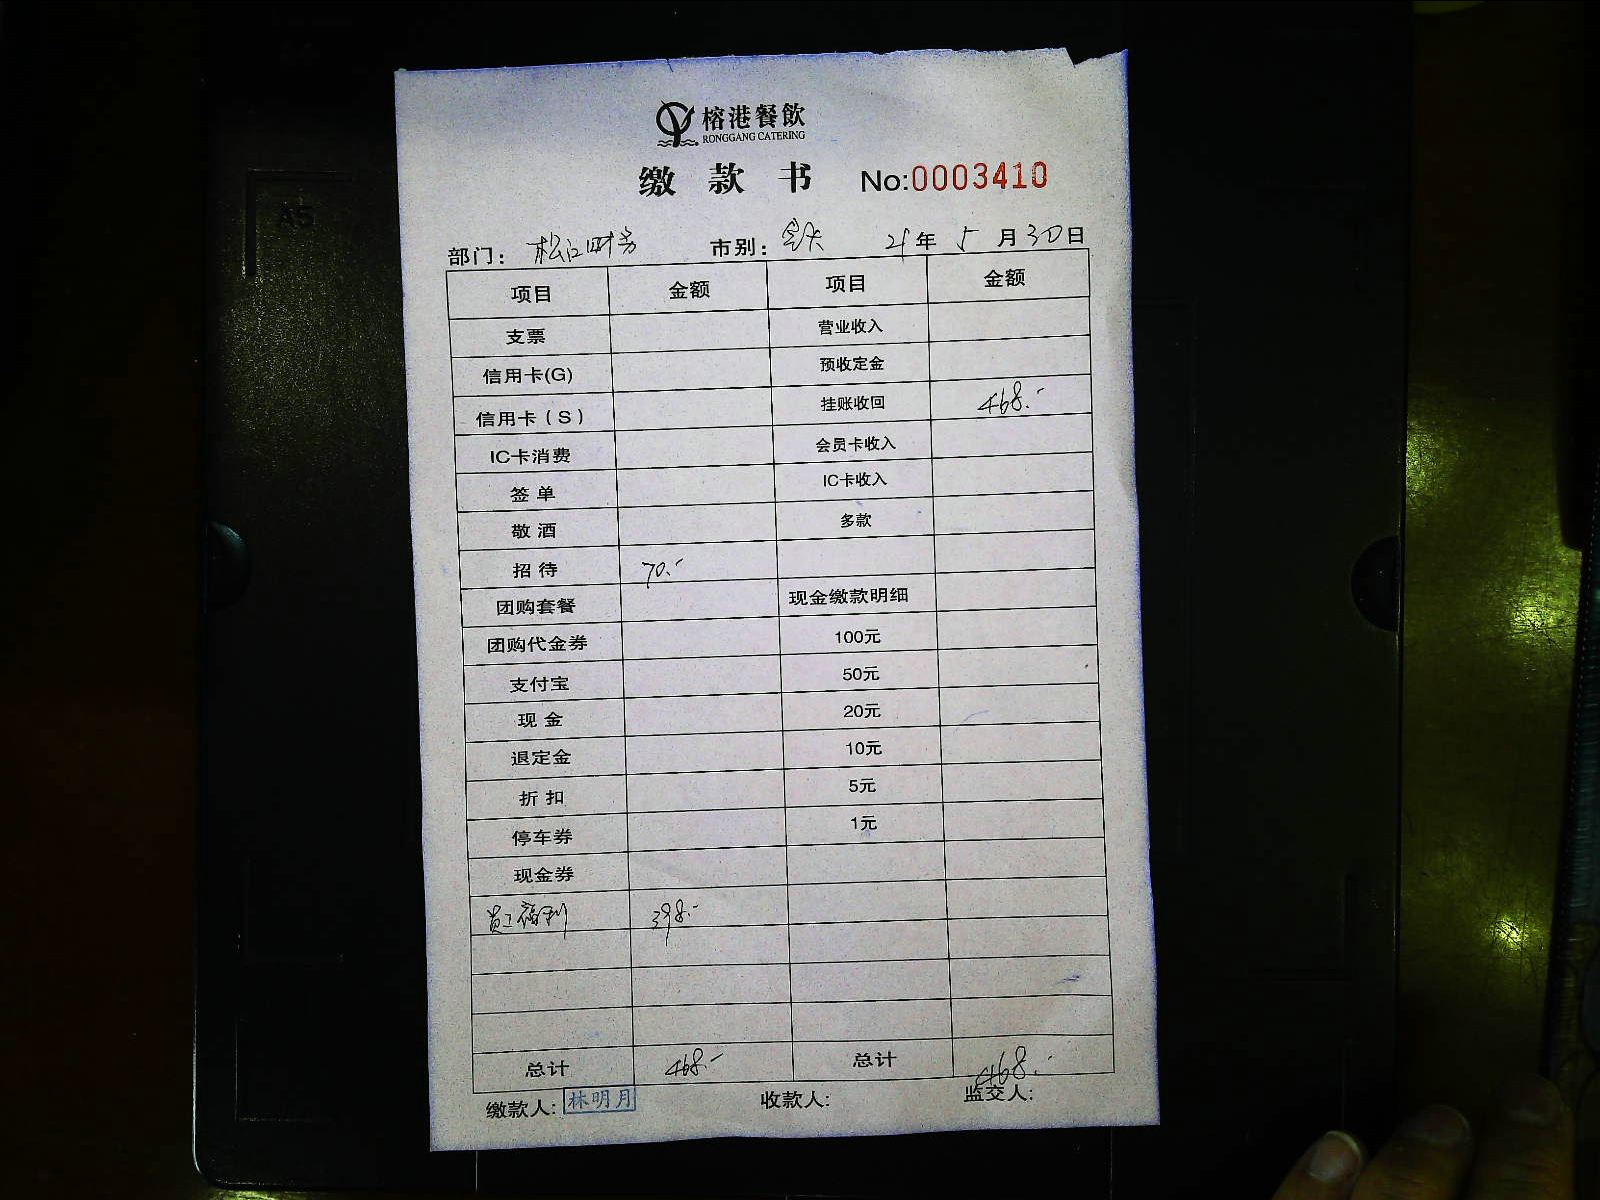 A5
榕港餐飲
RONGGANG CATERING
缴款书 No:0003410
部门: 松江财务 市别: 全天 21年5月30日
项目 金额 项目 金额
支票 营业收入
信用卡(G) 预收定金
信用卡(S) 挂账收回 468.-
IC卡消费 会员卡收入
签单 IC卡收入
敬酒 多款
招待 70.-
团购套餐 现金缴款明细
团购代金券 100元
支付宝 50元
现金 20元
退定金 10元
折扣 5元
停车券 1元
现金券
员工福利 398.-
总计 468.- 总计 468.-
缴款人: 林明月 收款人: 监交人: